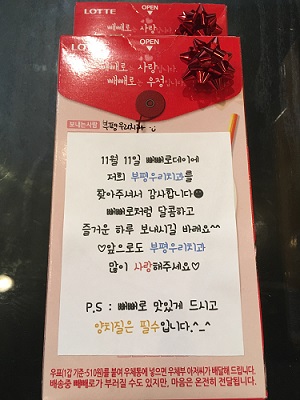 LOTTE
OPEN
빼빼로 사랑
LOTTE
OPEN
빼빼로 사랑
빼빼로 우정
보내는사람
부평우리치과
11월 11일 빼빼로데이에
저희 부평우리치과를
찾아주셔서 감사합니다
빼빼로처럼 달콤하고
즐거운 하루 보내시길 바래요^^
♡앞으로도 부평우리치과
많이 사랑해주세요♡
P.S : 빼빼로 맛있게 드시고
양치질은 필수입니다.^_^
우표(1갑 기준-510원)를 붙여 우체통에 넣으면 우체부 아저씨가 배달해 드립니다.
배송중 빼빼로가 부러질 수도 있지만, 마음은 온전히 전달됩니다.